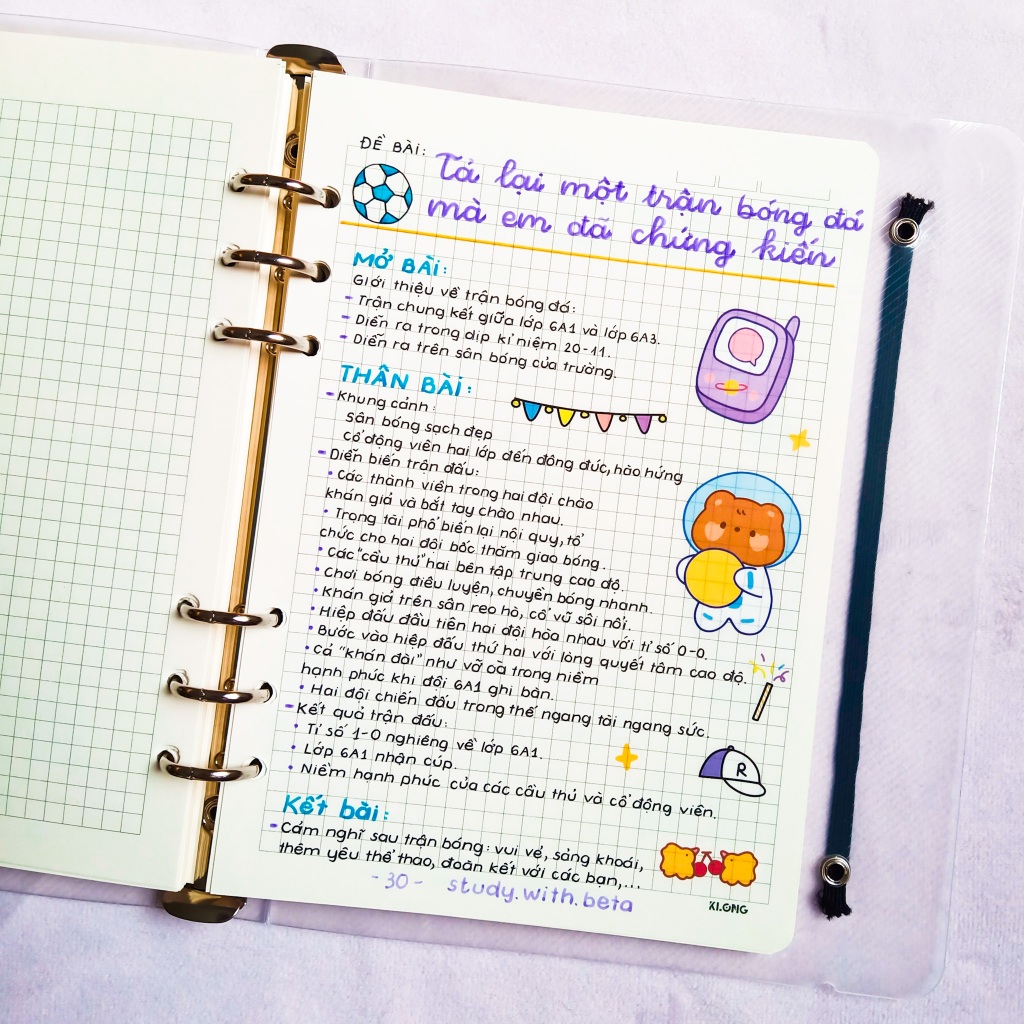 ĐỀ BÀI: Tả lại một trận bóng đá
mà em đã chứng kiến
MỞ BÀI:
Giới thiệu về trận bóng đá:
- Trận chung kết giữa lớp 6A1 và lớp 6A3.
- Diễn ra trong dịp kỉ niệm 20-11.
- Diễn ra trên sân bóng của trường.
THÂN BÀI:
- Khung cảnh:
Sân bóng sạch đẹp
Cổ động viên hai lớp đến đông đúc, hào hứng
- Diễn biến trận đấu:
• Các thành viên trong hai đội chào
khán giả và bắt tay chào nhau.
• Trọng tài phổ biến lại nội quy, tổ
chức cho hai đội bốc thăm giao bóng.
• Các "cầu thủ" hai bên tập trung cao độ.
• Chơi bóng điêu luyện, chuyền bóng nhanh.
• Khán giả trên sân reo hò, cổ vũ sôi nổi.
• Hiệp đấu đầu tiên hai đội hòa nhau với tỉ số 0-0.
• Bước vào hiệp đấu thứ hai với lòng quyết tâm cao độ.
• Cả "khán đài" như vỡ oà trong niềm
hạnh phúc khi đội 6A1 ghi bàn.
• Hai đội chiến đấu trong thế ngang tài ngang sức.
- Kết quả trận đấu:
• Tỉ số 1-0 nghiêng về lớp 6A1.
• Lớp 6A1 nhận cúp.
• Niềm hạnh phúc của các cầu thủ và cổ động viên.
R
Kết bài:
- Cảm nghĩ sau trận bóng: vui vẻ, sảng khoái,
thêm yêu thể thao, đoàn kết với các bạn,...
- 30 - study.with.beta
KLONG